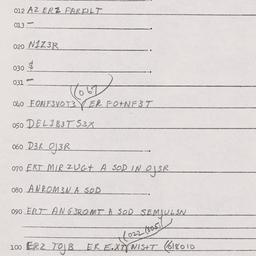 012 AZ ERZ FARFILT
013 -
020 N1Z3R
030 $
031 -
(067
040 FONF3VOT3 ER FO+NF3T
050 DEL3B3T S3X
060 D3R OJ3R
070 EKT MIR ZUG+ A SOD IN OJ3R
080 ANROM3N A SOD
090 ERT ANG3ROMT A SOD SEMJULSN
(022 (805)
100 ERZ TOJB ER EXT NIS+T